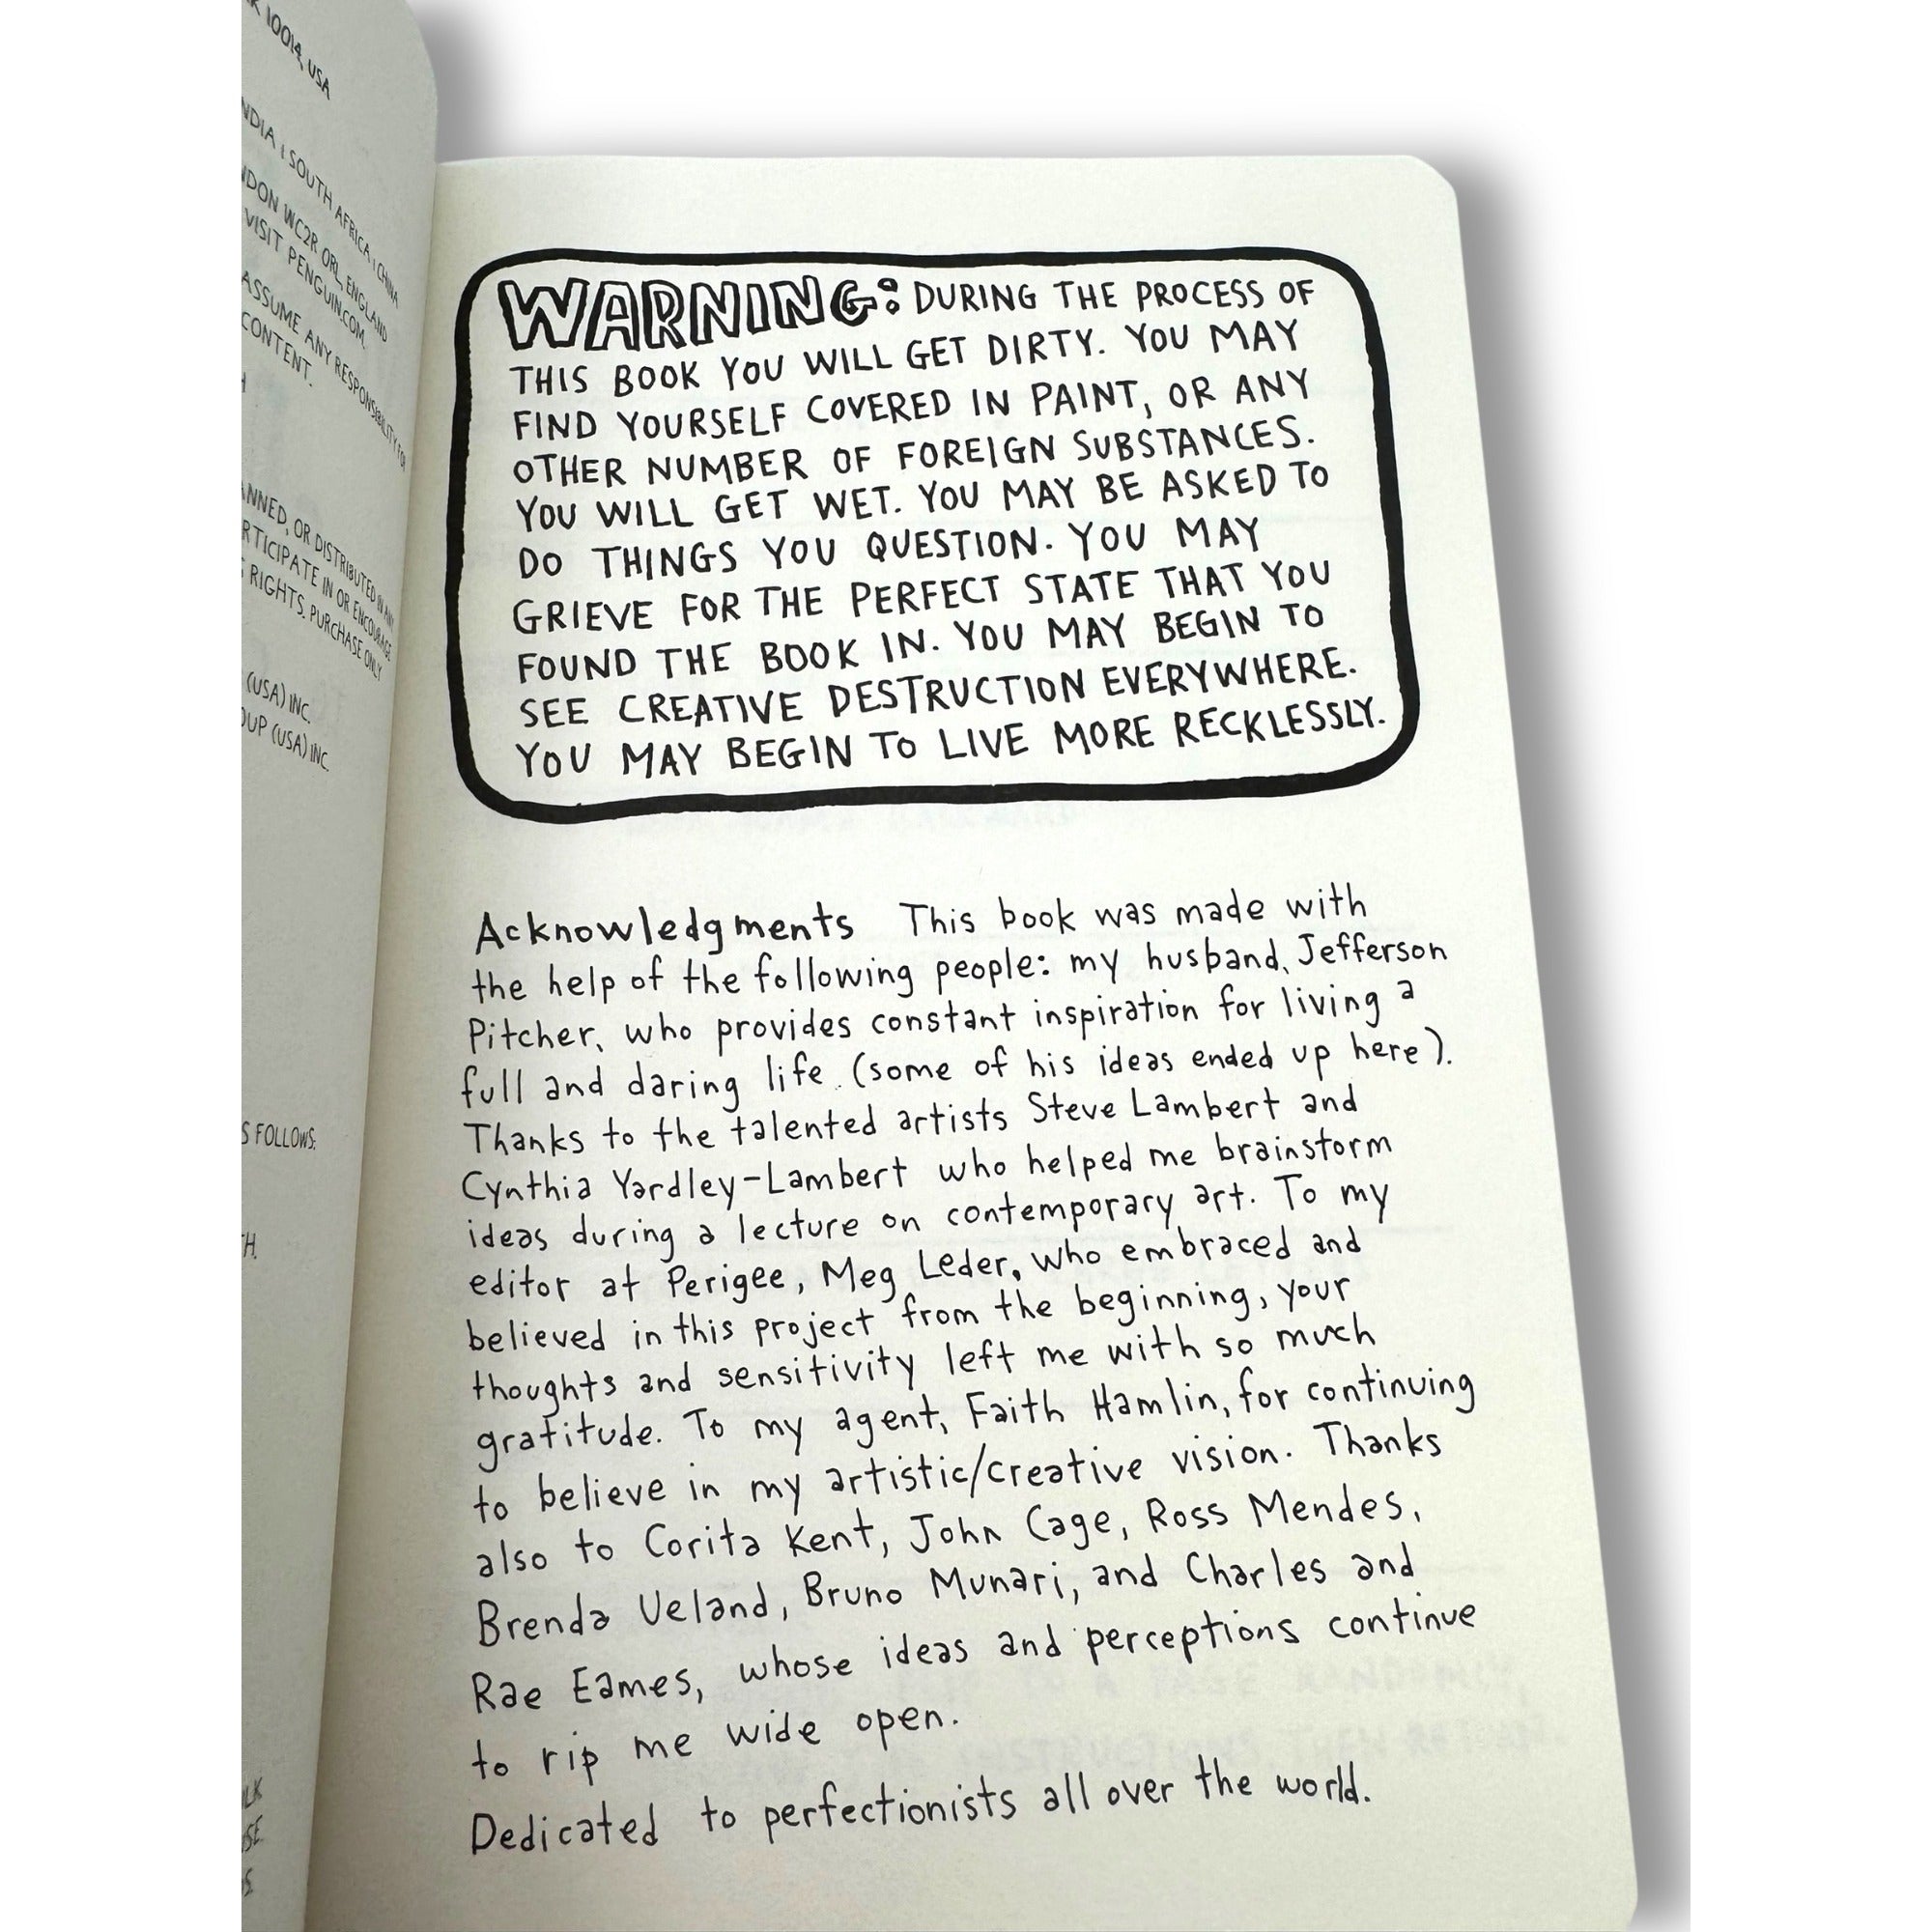 K 10014, USA
NDIA | SOUTH AFRICA | CHINA
NDON WC2R 0RL, ENGLAND
VISIT PENGUIN.COM.
ASSUME ANY RESPONSIBILITY FOR
CONTENT.
H
ANNED, OR DISTRIBUTED IN ANY
RTICIPATE IN OR ENCOURAGE
S RIGHTS. PURCHASE ONLY
(USA) INC.
OUP (USA) INC.
S FOLLOWS:
TH.
ILK
SE.
S.
WARNING: DURING THE PROCESS OF
THIS BOOK YOU WILL GET DIRTY. YOU MAY
FIND YOURSELF COVERED IN PAINT, OR ANY
OTHER NUMBER OF FOREIGN SUBSTANCES.
YOU WILL GET WET. YOU MAY BE ASKED TO
DO THINGS YOU QUESTION. YOU MAY
GRIEVE FOR THE PERFECT STATE THAT YOU
FOUND THE BOOK IN. YOU MAY BEGIN TO
SEE CREATIVE DESTRUCTION EVERYWHERE.
YOU MAY BEGIN TO LIVE MORE RECKLESSLY.
Acknowledgments This book was made with
the help of the following people: my husband, Jefferson
Pitcher, who provides constant inspiration for living a
full and daring life (some of his ideas ended up here).
Thanks to the talented artists Steve Lambert and
Cynthia Yardley-Lambert who helped me brainstorm
ideas during a lecture on contemporary art. To my
editor at Perigee, Meg Leder, who embraced and
believed in this project from the beginning, your
thoughts and sensitivity left me with so much
gratitude. To my agent, Faith Hamlin, for continuing
to believe in my artistic/creative vision. Thanks
also to Corita Kent, John Cage, Ross Mendes,
Brenda Ueland, Bruno Munari, and Charles and
Rae Eames, whose ideas and perceptions continue
to rip me wide open.
Dedicated to perfectionists all over the world.